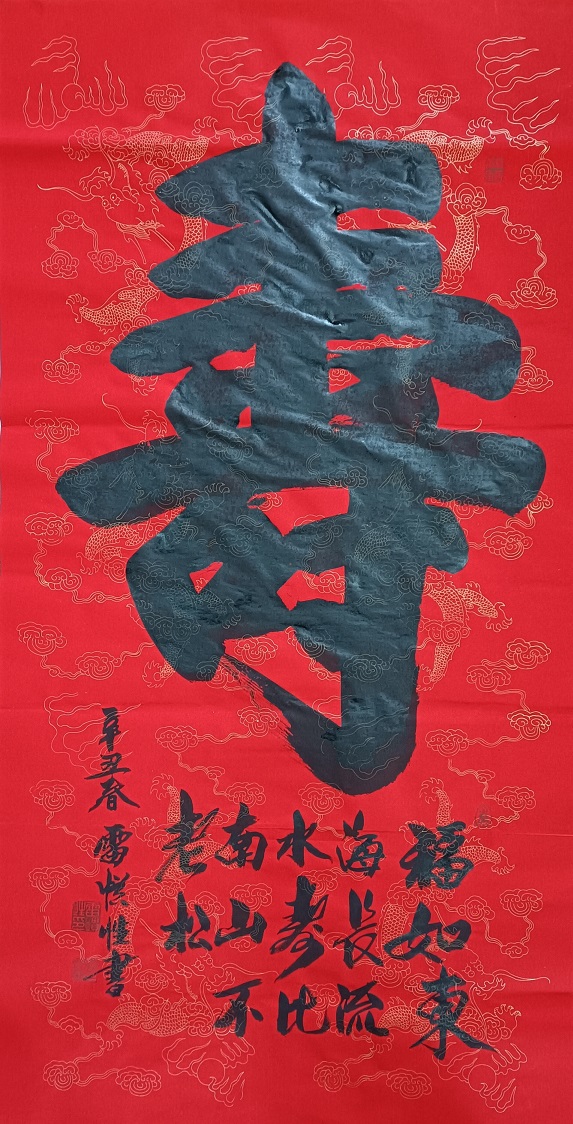 壽
福如東
海長流
水壽比
南山不
老松
辛丑春 雷悦惟書